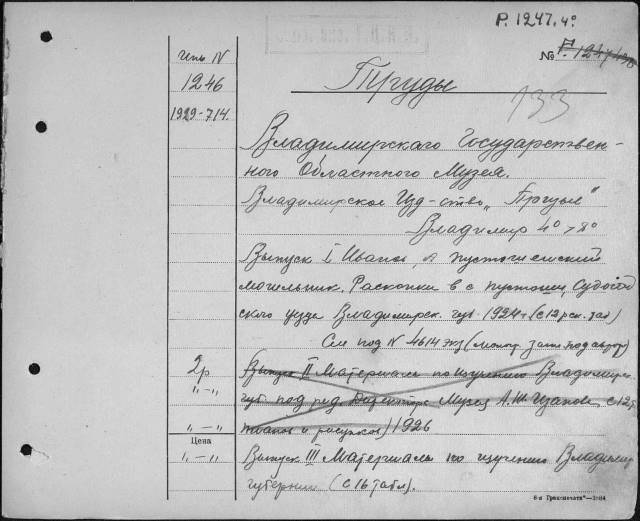 P. 1247. 4°
№ P. 1247/430
Цепь IV
1246
1929-714.
Труды
133
Владимирскаго Государствен-
ного Областного Музея.
Владимирское Изд-ство „Призыв"
Владимир 4° > 8°
Выпуск I Иванов, А Пустошенский
могильник. Раскопки в с пустоши, Судогод
ского уезда Владимирск. губ 1924 г. (с 12 рис. таб)
См под № 4614 (автор)
2 р
Выпуск II Материалы по изучению Владимирс.
„-„
губ под ред Директора Музея А. И. Иванова, с 12
„-„
и рисунков) 1926
Цена
„-„
Выпуск III Материалы по изучению Владимир
губернии (с 16 табл).
6-я Гранпечать"—3084